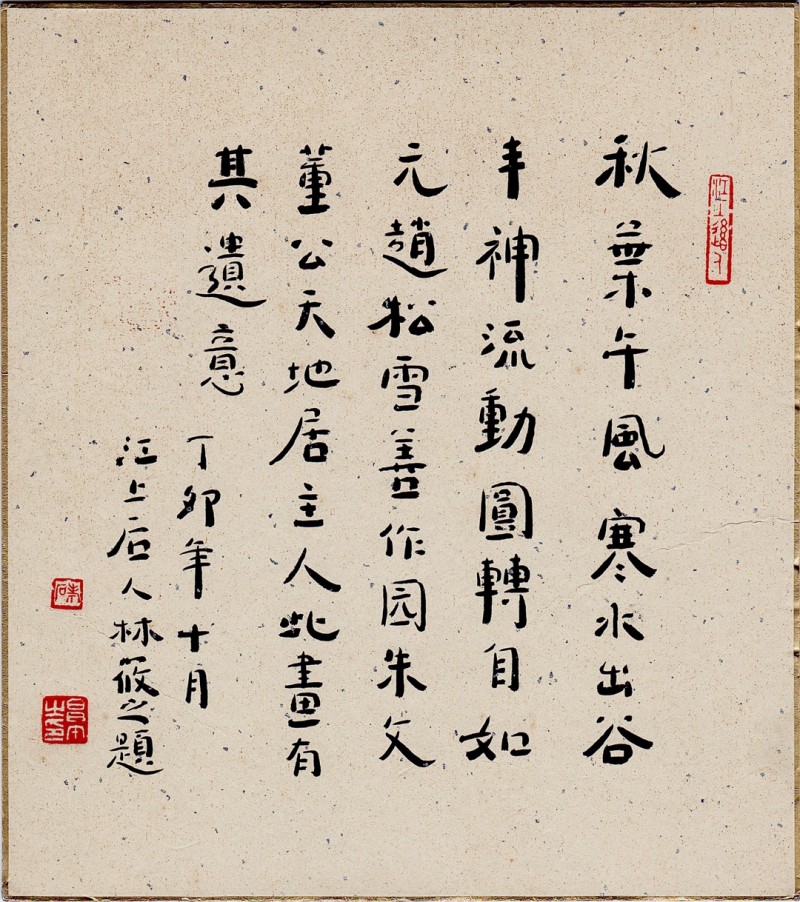 江上後人
秋葉午風寒水出谷
丰神流動圓轉自如
元趙松雪善作园朱文
董公天地居主人此畫有
其遺意
丁卯年十月
江上后人林筱之題